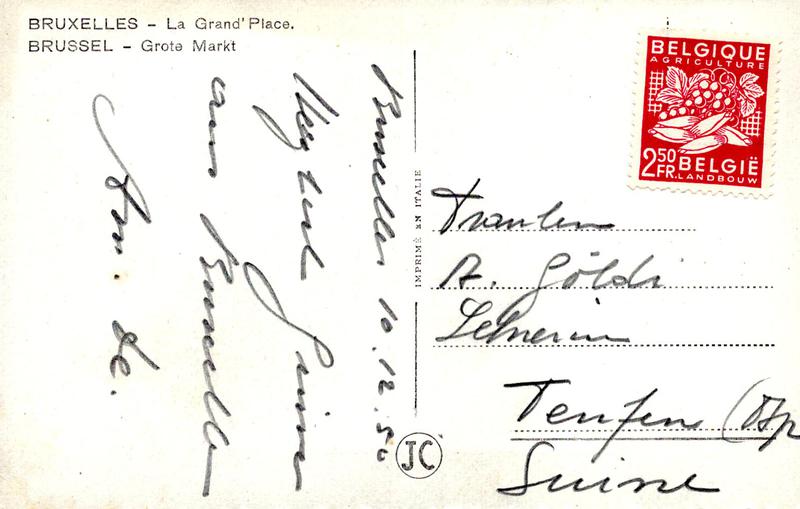 BRUXELLES - La Grand'Place.
BRUSSEL - Grote Markt
Bruxelles 10.12.50
Herzlich Grüsse
aus Bruxelles
IMPRIMÉ EN ITALIE
JC
BELGIQUE
AGRICULTURE
2.50 FR. BELGIË
LANDBOUW
Fräulein
A. Göldi
Lehrerin
Teufen (App
Suisse